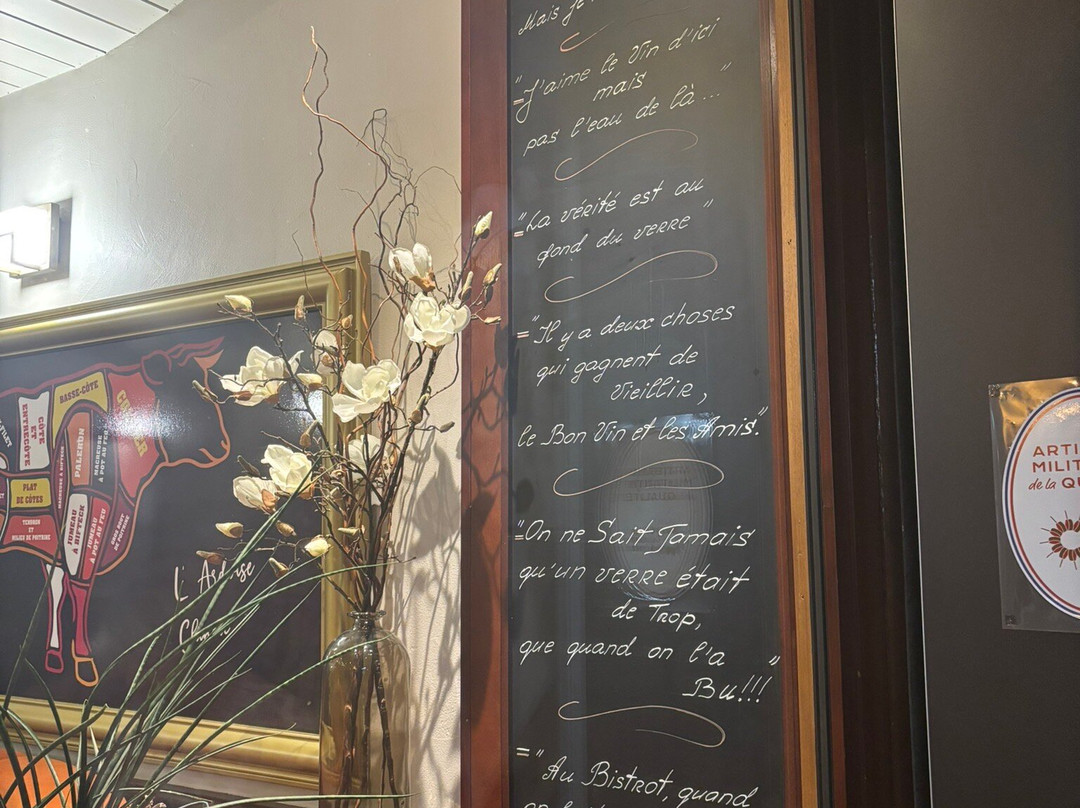 Mais je
="J'aime le Vin d'ici
mais
pas l'eau de là..."
="La vérité est au
fond du verre"
="Il y a deux choses
qui gagnent de
Vieillir,
le Bon Vin et les Amis."
="On ne Sait Jamais
qu'un verre était
de Trop,
que quand on l'a
Bu!!!"
="Au Bistrot, quand
BASSE-CÔTE
CÔTE
ET
ENTRECÔTE
PALERON
MACREUSE
À POT AU FEU
MACREUSE À BIFTECK
PLAT
DE CÔTES
TENDRON
ET
MILIEU DE POITRINE
JUMEAU
À BIFTECK
JUMEAU
À POT AU FEU
GROS BOUT
DE POITRINE
COLLIER
L'Ardoise
ARTI
MILIT
de la QU